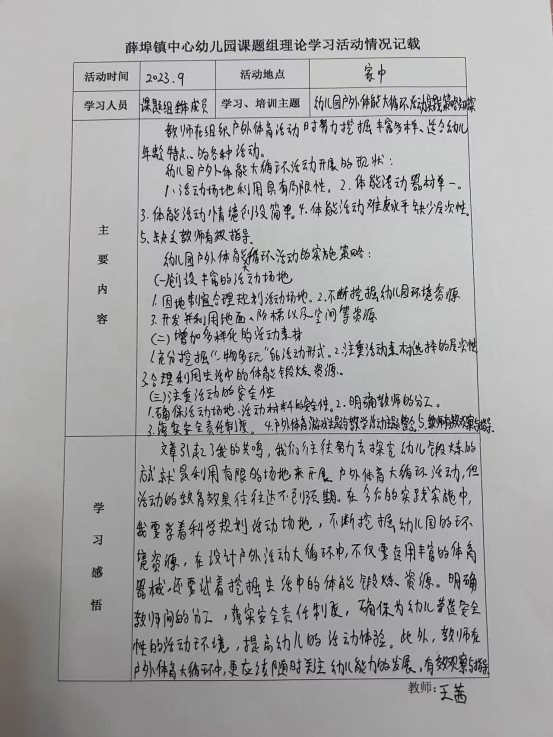 薛埠镇中心幼儿园课题组理论学习活动情况记载
活动时间 2023.9 活动地点 家中
学习人员 课题组全体成员 学习、培训主题 幼儿园户外体能大循环活动实践策略初探
主要内容
教师在组织户外体育活动时努力挖掘丰富多样、适合幼儿
年龄特点的各种活动。
幼儿园户外体能大循环活动开展的现状：
1.活动场地利用具有局限性。2.体能活动器材单一。
3.体能活动情境创设简单。4.体能活动难度水平缺少层次性。
5.缺乏教师有效指导。
幼儿园户外体能大循环活动的实施策略：
(一)创设丰富的活动场地
1.因地制宜合理规划活动场地。2.不断挖掘幼儿园环境资源
3.开发并利用地面、阶梯以及空间等资源
(二)增加多样化的活动素材
1.充分挖掘“一物多玩”的活动形式。2.注重活动素材选择的层次性
3.合理利用生活中的体能锻炼资源。
(三)注重活动的安全性
1.确保活动场地、活动材料的安全性。2.明确教师的分工。
3.落实安全责任制度。4.户外体育游戏主题与教学活动主题整合。5.教师有效观察与指导。
学习感悟
文章引起了我的共鸣，我们往往努力去探究幼儿锻炼的
方式就是利用有限的场地来开展户外体育大循环活动，但
活动的教育效果往往达不到预期。在今后的实践实施中，
我要学着科学规划活动场地，不断挖掘幼儿园的环
境资源，在设计户外活动大循环中，不仅要运用丰富的体育
器械，还要试着挖掘生活中的体能锻炼资源。明确
教师间的分工，落实安全责任制度，确保为幼儿营造安全
性的活动环境，提高幼儿的活动体验。此外，教师在
户外体育大循环中，更应该随时关注幼儿能力的发展，有效观察与指导。
教师：王茜